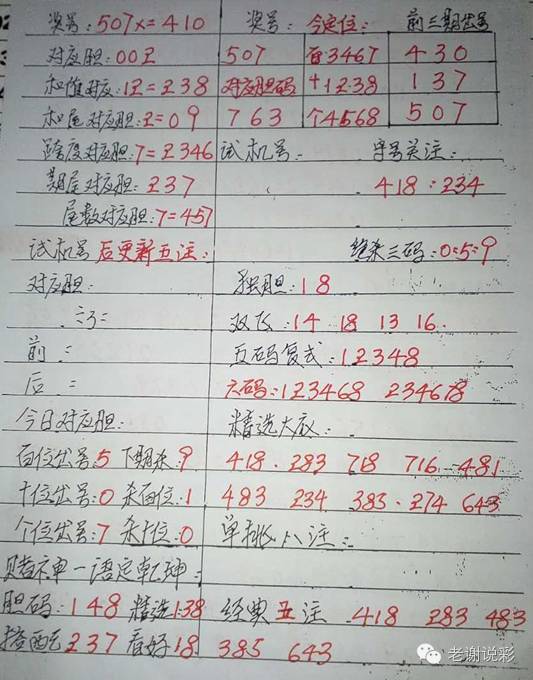 奖号:507X=410 奖号: 今定位: 前三期出号
对应胆:002 507 百3467 430
和值对应:12=238 对应胆码 十1238 137
和尾对应胆:2=09 763 个4568 507
跨度对应胆:7=2346 试机号: 字号关注:
期尾对应胆:237 418:234
尾数对应胆:7=457
试机号后更新五注: 绝杀三码:0:5:9
对应胆: 独胆:18
双飞:14 18 13 16.
前 = 五码复式:12348
后 = 六码:123468 234678
今日对应胆: 精选大底:
百位出号:5 下期杀:9 418. 283 718 716 481
十位出号:0 杀百位:1 483 234 383. 274 643
个位出号:7 杀十位:0 单挑八注:
赌神一语定乾坤:
胆码:148 精选138 经典五注 418 283 483
搭配237 看好18 385 643
老谢说彩